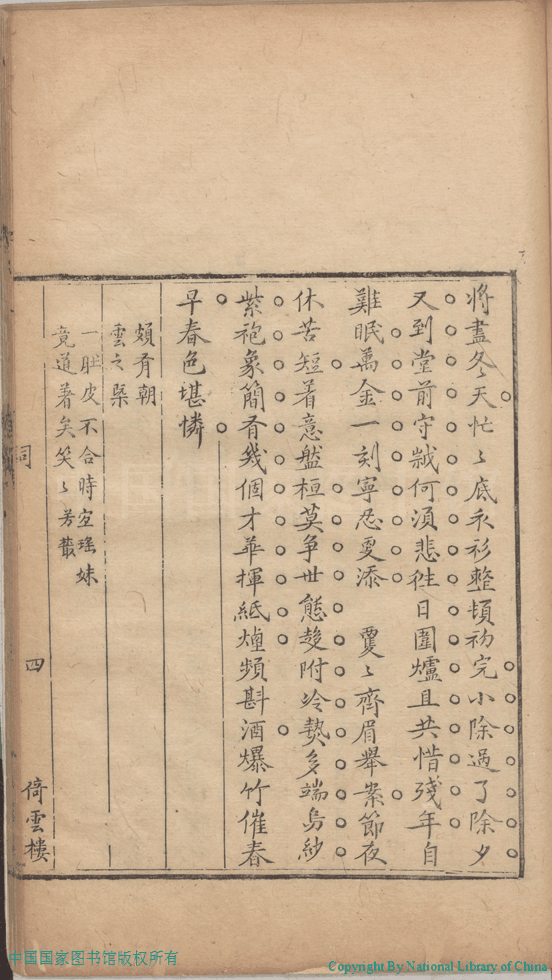 將盡冬〻天忙〻底衣衫整頓初完小除過了除夕
又到堂前守歲何須悲徃日圍爐且共惜殘年自
難眠萬金一刻寧忍更添　雙〻齊眉舉案節夜
休苦短着意盤桓莫争世態趍附冷熱多端烏紗
紫袍象簡有幾個才華揮紙煙頻斟酒爆竹催春
早春色堪憐
頗有朝
雲之槩
一肚皮不合時宜瑶妹
竟道著矣笑〻芳叢
詞
四
倚雲樓
中国国家图书馆版权所有
Copyright By National Library of China